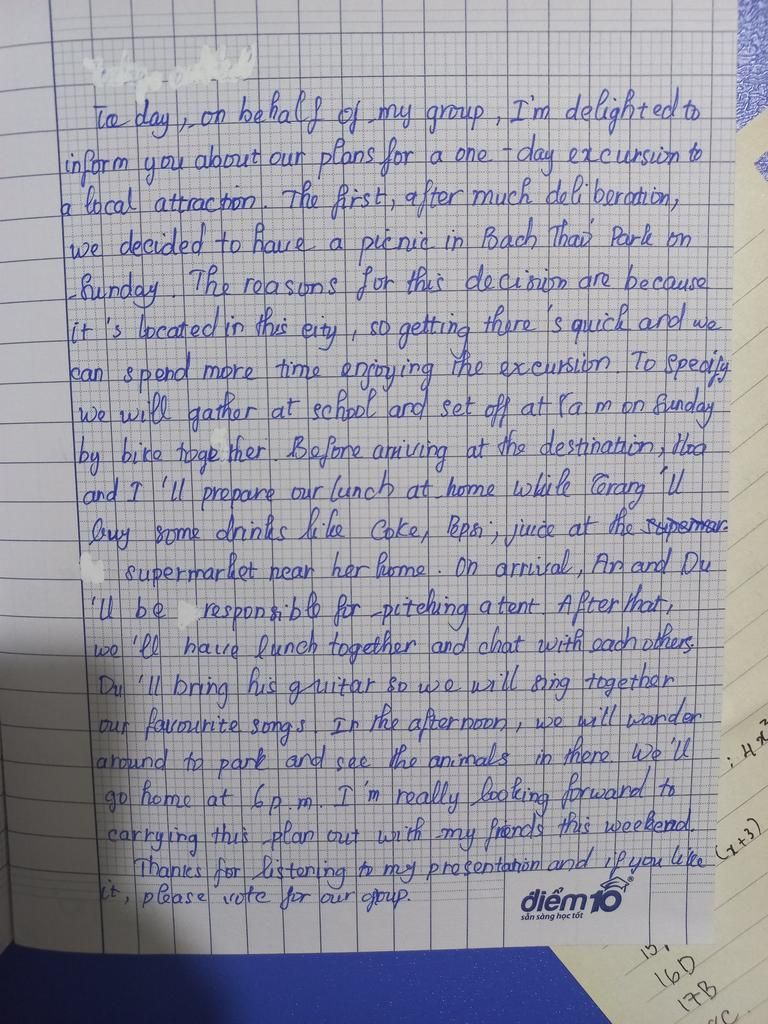 To day, on behalf of my group, I'm delighted to
inform you about our plans for a one-day excursion to
a local attraction. The first, after much deliberation,
we decided to have a picnic in Bach Thao Park on
Sunday. The reasons for this decision are because
it's located in this city, so getting there's quick and we
can spend more time enjoying the excursion. To specify
we will gather at school and set off at a.m on Sunday
by bike together. Before arriving at the destination, Hoa
and I'll prepare our lunch at home while Trang'll
buy some drinks like Coke, Pepsi, juice at the
supermarket near her home. On arrival, An and Du
'll be responsible for pitching a tent. After that,
we'll have lunch together and chat with each others.
Du'll bring his gruitar so we will sing together
our favourite songs. In the afternoon, we will wander
around to park and see the animals in there. We'll
go home at 6 p.m. I'm really looking forward to
carrying this plan out with my friends this weekend.
Thanks for listening to my presentation and if you like
it, please vote for our group.
điểm10
sẵn sàng học tốt
: 4x²
(x+3)
16D
17B